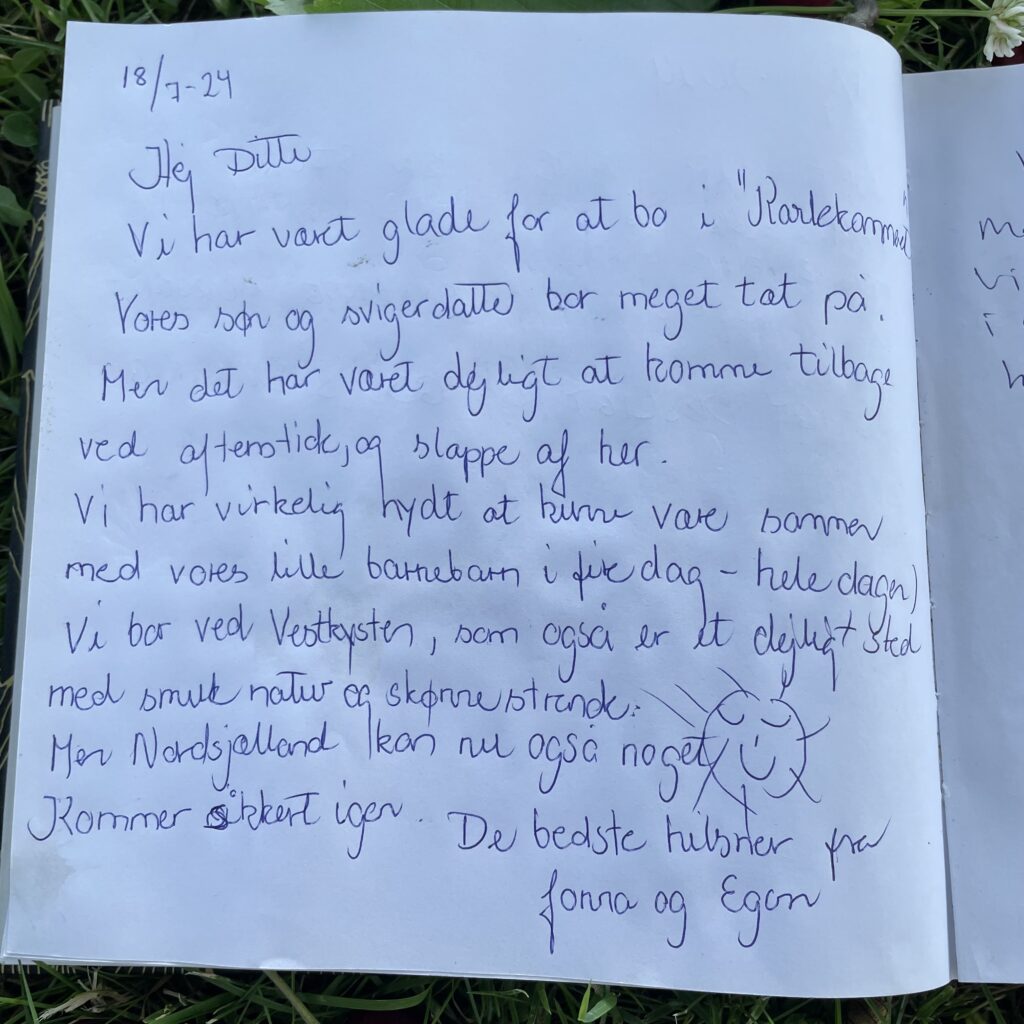 18/7-24
Hej Ditte
Vi har været glade for at bo i "Karlekammeret"
Vores søn og svigerdatter bor meget tæt på.
Men det har været dejligt at komme tilbage
ved aftenstide, og slappe af her.
Vi har virkelig nydt at kunne være sammen
med vores lille barnebarn i fire dag - hele dagen)
Vi bor ved Vestkysten, som også er et dejligt sted
med smuk natur og skønne strande.
Men Nordsjælland kan nu også noget
Kommer sikkert igen. De bedste hilsner fra
og Egon
m
Vi
i
h